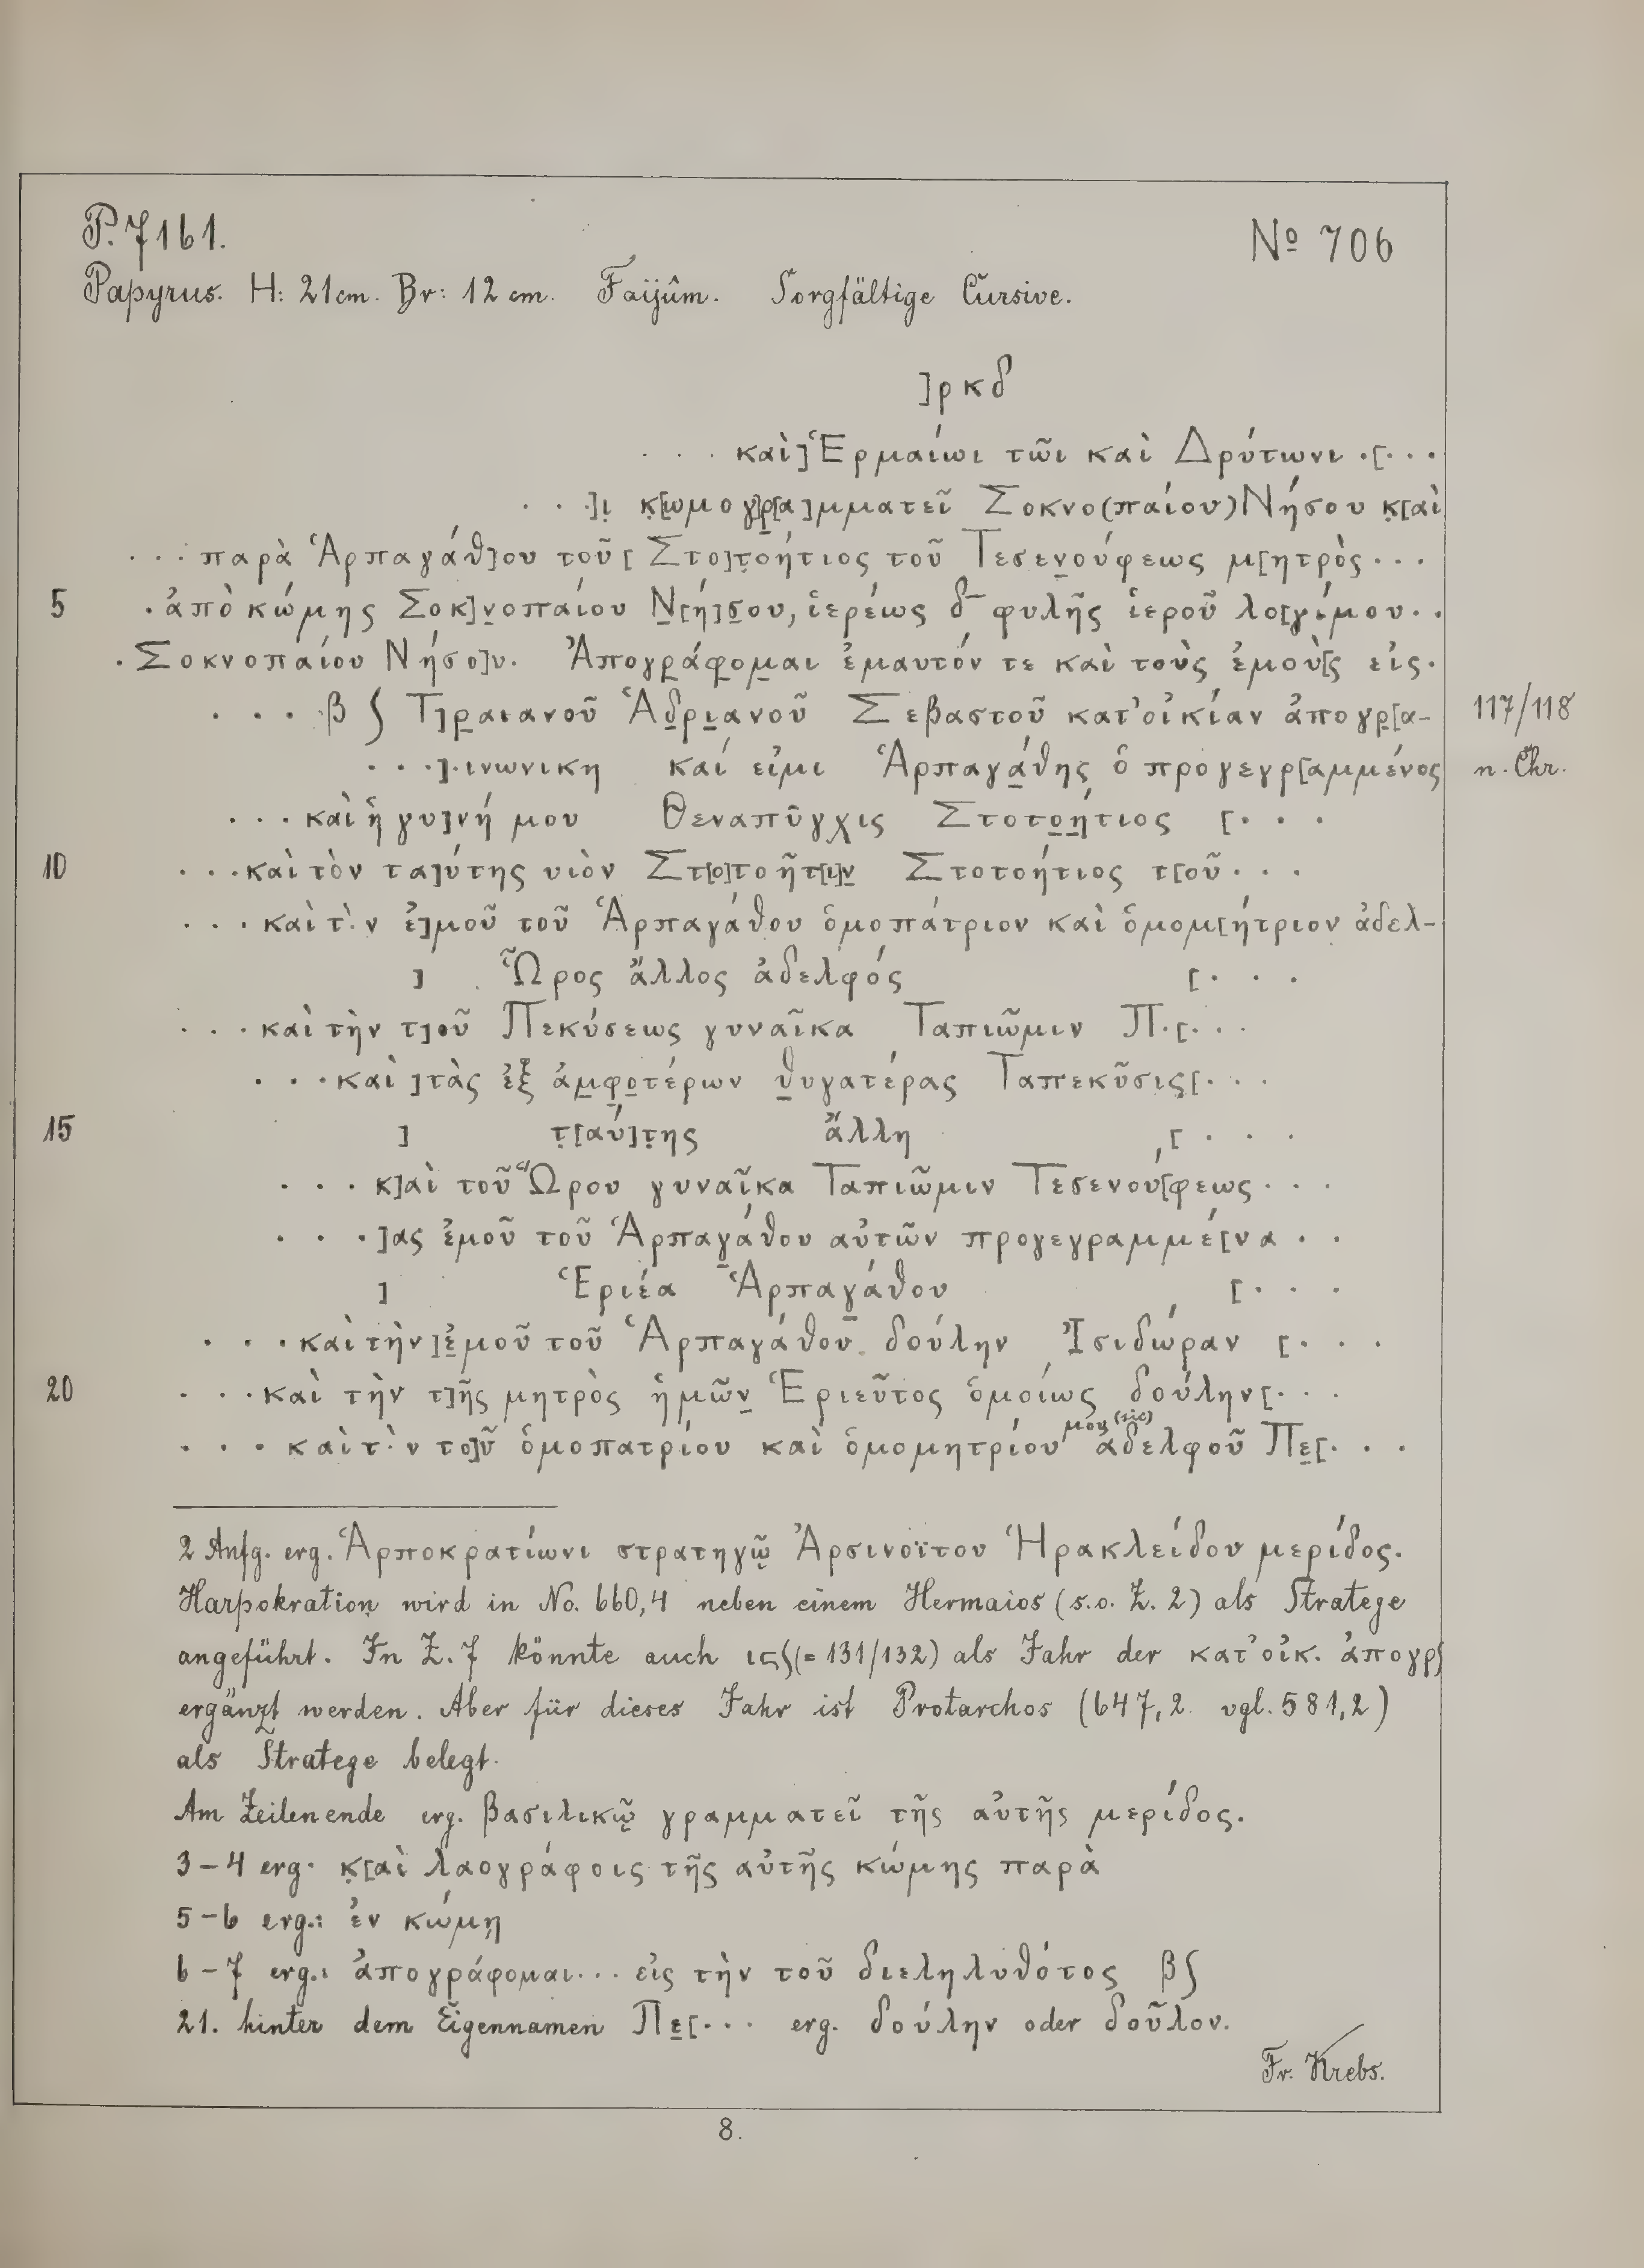 P. 7161.
No 706
Papyrus. H: 21 cm. Br: 12 cm. Faijûm. Sorgfältige Cursive.
]ρκδ
. . . καὶ] Ἑρμαίωι τῶι καὶ Δρύτωνι .[. . .
. . .]ι̣ κ̣[ωμογ]ρ̣[α]μματεῖ Σοκνο(παίου) Νήσου κ̣[αὶ
. . . παρὰ Ἁρπαγάθ]ου τοῦ [Στο]τ̣οήτιος τοῦ Τεσεν̣ούφεως μ[ητρὸς . . .
5 . ἀπὸ κώμης Σοκ]ν̣οπαίου Ν̣[ή]σ̣ου, ἱερέως δ― φυλῆς ἱεροῦ λο[γίμου . .
. Σοκνοπαίου Νήσο]υ. Ἀπογρ̣άφ̣ο̣μ̣αι ἐμαυτόν τε καὶ τοὺς ἐμοὺ[ς εἰς.
. . . β ʃ Τ]ρ̣αιανοῦ Ἁδ̣ρι̣ανοῦ Σεβαστοῦ κατ' οἰκίαν ἀπογρ̣[α- 117/118
. . .].ινωνικη καί εἰμι Ἁρπαγά̣θης ὁ προγεγρ[αμμένος n. Chr.
. . . καὶ ἡ γυ]νή μου Θεναπῦγχις Στοτο̣ή̣τιος [. . .
10 . . . καὶ τὸν τα]ύτης υἱὸν Στ[ο]τοῆτ[ι]ν̣ Στοτοήτιος τ[οῦ . . .
. . . καὶ τ . ν ἐ]μοῦ τοῦ Ἁρπαγάθου ὁμοπάτριον καὶ ὁμομ[ήτριον ἀδελ-
] . Ὧρος ἄλλος ἀδελφός [. . .
. . . καὶ τὴν τ]οῦ Πεκύσεως γυναῖκα Ταπιῶμιν Π.[. . .
. . . καὶ ]τὰς ἐξ ἀμ̣φ̣ο̣τέρων θ̣υγατέρας Ταπεκῦσις̣[. . .
15 ] τ̣[αύ]τ̣ης ἄλλη ,[ . . .
. . . κ]αὶ τοῦ Ὥρου γυναῖκα Ταπιῶμιν Τεσενού[φεως . . .
. . .]ας ἐμοῦ τοῦ Ἁρπαγ̣άθου αὐτῶν προγεγραμμέ[να . .
] Ἑριέα Ἁρπαγ̣άθου [. . .
. . . καὶ τὴν ]ἐ̣μοῦ τοῦ Ἁρπαγάθου̣ δούλην Ἰσιδώραν [. . .
20 . . . καὶ τὴν τ]ῆς μητρὸς ἡμῶν̣ Ἑριεῦτος ὁμοίως δούλην[. . .
. . . καὶ τ . ν το]ῦ ὁμοπατρίου καὶ ὁμομητρίου μου (sic) ἀδελφοῦ Πε̣[. . .
2 Anfg. erg. Ἁρποκρατίωνι στρατηγῷ Ἀρσινοΐτου Ἡρακλείδου μερίδος.
Harpokration wird in No. 660,4 neben einem Hermaios (s.o. Z. 2) als Stratege
angeführt. In Z. 7 könnte auch ιϛʃ (= 131/132) als Jahr der κατ' οἰκ. ἀπογρʃ
ergänzt werden. Aber für dieses Jahr ist Protarchos (647,2. vgl. 581,2)
als Stratege belegt.
Am Zeilenende erg. βασιλικῷ γραμματεῖ τῆς αὐτῆς μερίδος.
3–4 erg. κ̣[αὶ λαογράφοις τῆς αὐτῆς κώμης παρὰ
5–6 erg.: ἐν κώμῃ
6–7 erg.: ἀπογράφομαι . . . εἰς τὴν τοῦ διεληλυθότος βʃ
21. hinter dem Eigennamen Πε̣[. . . erg. δούλην oder δοῦλον.
Fr. Krebs.
8.